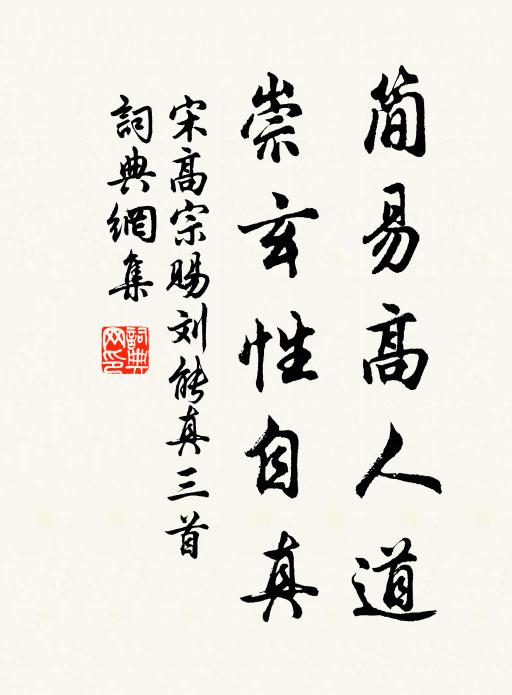 简易高人道
崇玄性自真
宋高宗赐刘能真三首
詞典網集
詞典網印